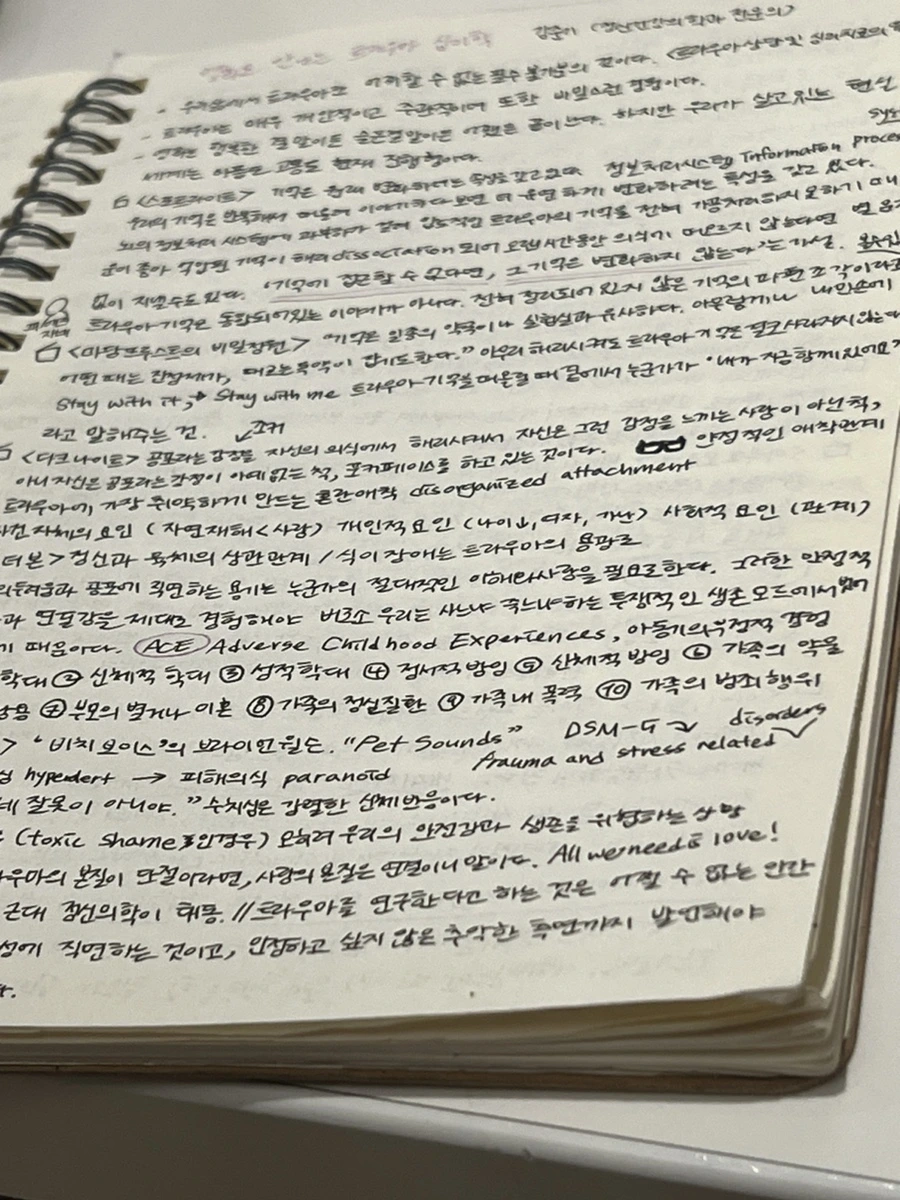 영화로 만나는 트라우마 심리학 김준기 (정신건강의학과 전문의)
- 우리 트라우마는 어찌할 수 없는 필수 불가분의 것이다. <트라우마 상담 및 심리치료의
- 트라우마는 매우 개인적이고 주관적이며 또한 비밀스런 경험이다.
- 영화는 행복한 결말이든 슬픈 결말이든 어쨌든 끝이 난다. 하지만 우리가 살고 있는 현실
세계는 아픔도 고통도 현재 진행형이다.
<스포트라이트> 기억은 원래 변화하려는 속성을 갖고 있고 정보처리시스템 Information process
우리의 기억은 반복해서 떠올려 이야기하다 보면 더 유연하게 변화하려는 특성을 갖고 있다.
뇌의 정보처리 시스템에 과부하가 걸려 압도적인 트라우마의 기억을 전혀 가공처리하지 못하기 때
운이 좋아 억압된 기억이 해리 dissociation 되어 오랜 시간동안 의식이 떠오르지 않는다면 별 음
없이 지낼수도 있다. '기억에 접근할 수 없다면, 그 기억은 변화하지 않는다'는 가설.
트라우마 기억은 통합되어있는 이야기가 아니다. 전혀 정리되어 있지 않은 기억의 파편 조각이라
<마담 프루스트의 비밀정원> "기억은 일종의 약국이나 실험실과 유사하다. 아무렇게나 내민 손에
어떤 때는 진정제가, 때로는 독약이 잡히기도 한다." 아무리 해리시켜도 트라우마 기억은 결코 사라지지 않는다
Stay with it, → Stay with me 트라우마 기억을 떠올릴 때 곁에서 누군가가 '내가 지금 함께 있어요'
라고 말해주는 것. 조커
<다크나이트> 공포라는 감정을 자신의 의식에서 해리시켜서 자신은 그런 감정을 느끼는 사람이 아닌 척,
아니 자신은 공포라는 감정이 아예 없는 척, 포커페이스를 하고 있는 것이다. 안정적인 애착관계
트라우마에 가장 취약하게 만드는 혼란애착 disorganized attachment
사건 자체의 요인 (자연재해<사람) 개인적 요인 (나이↓, 여자, 가난) 사회적 요인 (관계)
터본> 정신과 육체의 상관관계 / 식이장애는 트라우마의 용광로
두려움과 공포에 직면하는 용기는 누군가의 절대적인 이해와 사랑을 필요로 한다. 그러한 안정적
과 연결감을 제대로 경험해야 비로소 우리는 사느냐 죽느냐 하는 투쟁적인 생존 모드에서 벗어
기 때문이다. ACE Adverse Childhood Experiences, 아동기의 부정적 경험
학대 ② 신체적 학대 ③ 성적학대 ④ 정서적 방임 ⑤ 신체적 방임 ⑥ 가족의 약물
남용 ⑦ 부모의 별거나 이혼 ⑧ 가족의 정신질환 ⑨ 가족 내 폭력 ⑩ 가족의 범죄행위
> '비치 보이스'의 브라이언 윌슨. "Pet Sounds" DSM-5 disorders
hyperalert → 피해의식 paranoid trauma and stress related
네 잘못이 아니야." 수치심은 강렬한 신체반응이다.
(toxic shame인 경우) 오히려 우리의 안전감과 생존을 위협하는 상황
우마의 본질이 단절이라면, 사랑의 본질은 연결이니 말이다. All we need is love!
근대 정신의학이 태동. // 트라우마를 연구한다고 하는 것은 어쩔 수 없는 인간
성에 직면하는 것이고, 인정하고 싶지 않은 추악한 측면까지 발언해야
다.